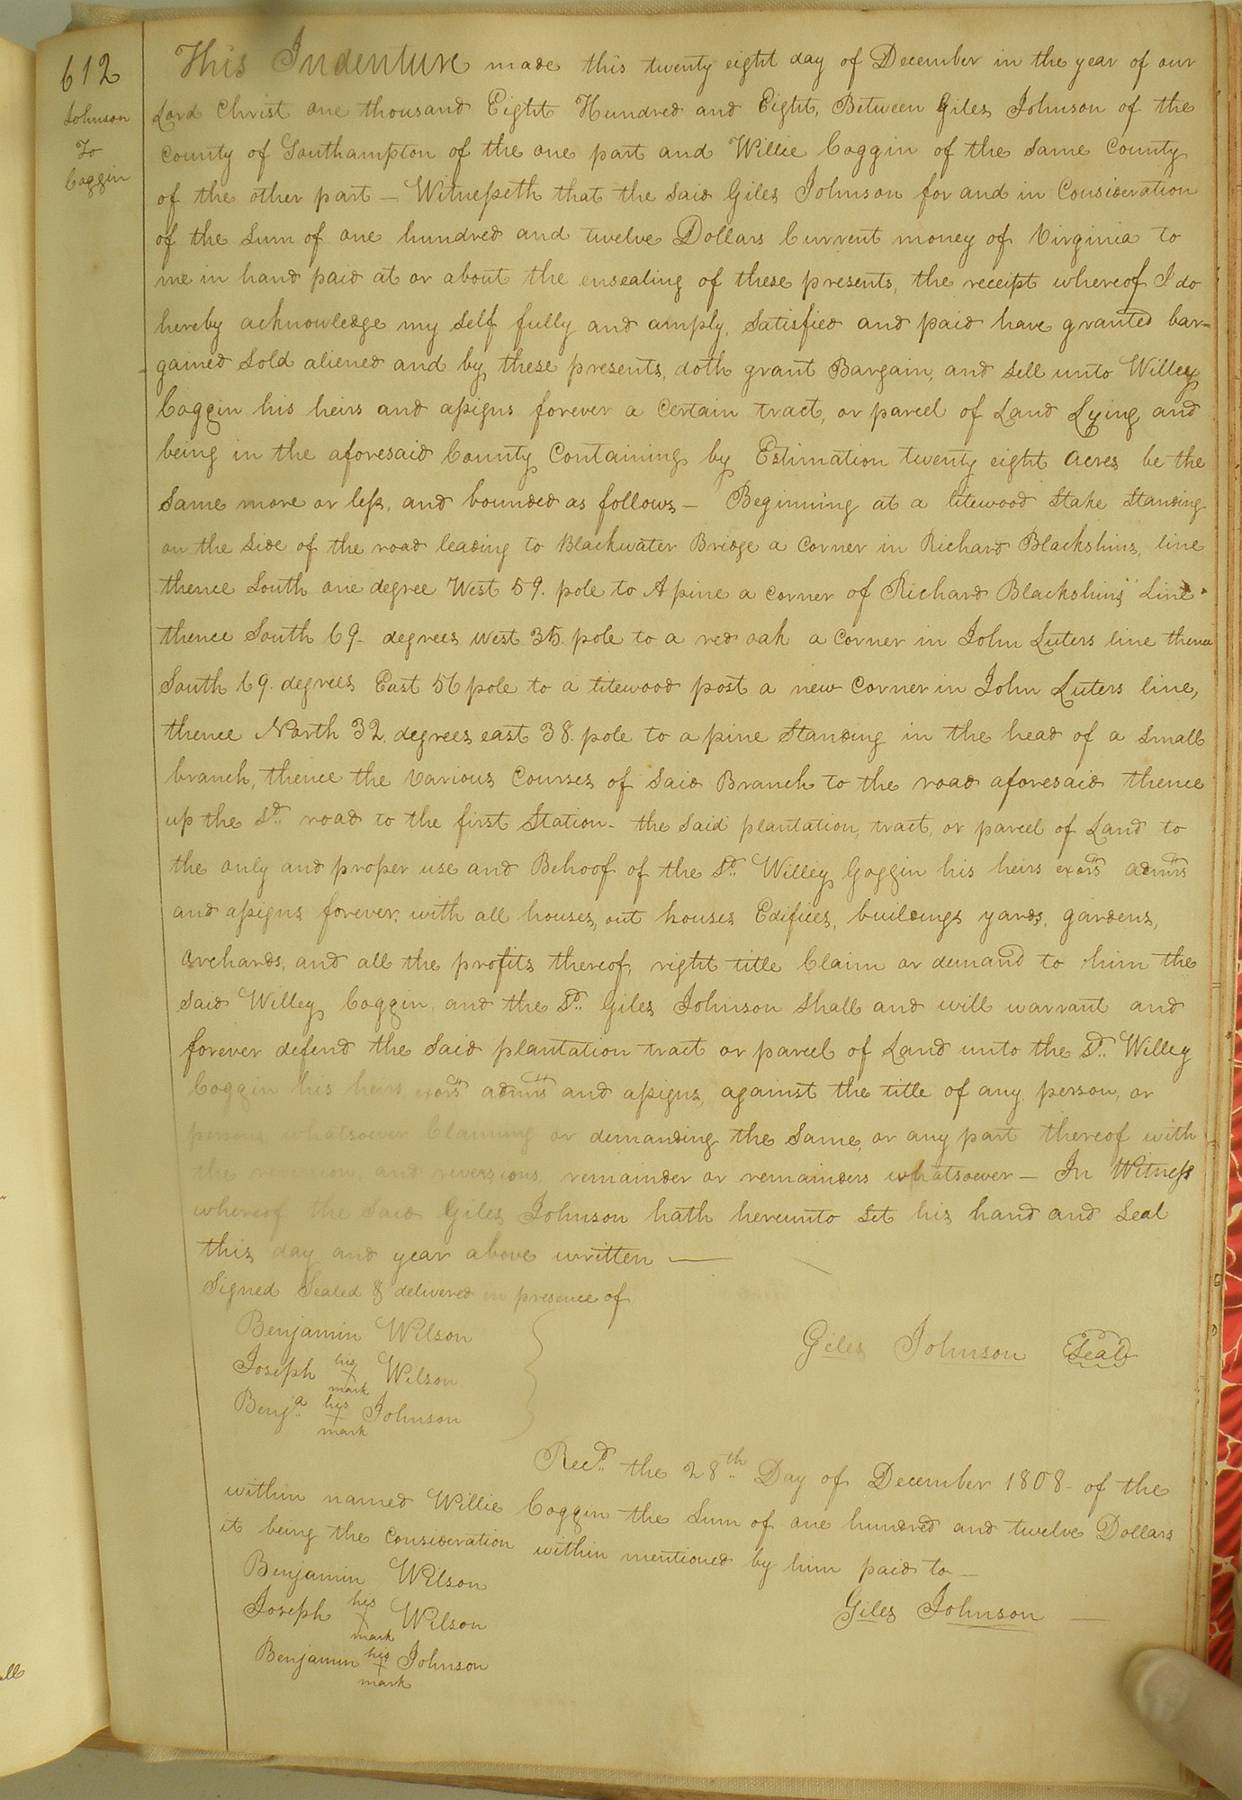 612
Johnson
To
Coggin
This Indenture made this twenty eight day of December in the year of our
Lord Christ one thousand Eight Hundred and Eight, Between Giles Johnson of the
County of Southampton of the one part and Willie Coggin of the same County
of the other part — Witnesseth that the said Giles Johnson for and in Consideration
of the Sum of one hundred and twelve Dollars Current money of Virginia to
me in hand paid at or about the ensealing of these presents, the receipt whereof I do
hereby acknowledge my self fully and amply, Satisfied and paid have granted bar-
gained Sold aliened and by these presents, doth grant Bargain, and sell unto Willey
Coggin his heirs and assigns forever a Certain tract, or parcel of Land Lying and
being in the aforesaid County Containing by Estimation twenty eight acres be the
Same more or less, and bounded as follows — Beginning at a litewood Stake Standing
on the Side of the road leading to Blackwater Bridge a Corner in Richard Blackshins, line
thence South one degree West 59. pole to A pine a corner of Richard Blackshins" Line
thence South 69. degrees west 35 pole to a red oak a corner in John Luters line thence
South 69. degrees East 56 pole to a litewood post a new Corner in John Luters line,
thence North 32. degrees east 38. pole to a pine Standing in the head of a small
branch, thence the various Courses of Said Branch to the road aforesaid thence
up the Sd. road to the first Station - the said plantation, tract, or parcel of Land to
the only and proper use and Behoof of the Sd. Willey Goggin his heirs exors admrs
and assigns forever, with all houses, out houses Edifices, buildings yards, gardens,
orchards, and all the profits thereof, right title Claim or demand to him the
Said Willey Coggin, and the Sd. Giles Johnson Shall and will warrant and
forever defend the Said plantation tract or parcel of Land unto the Sd. Willey
Coggin his heirs exors admrs and assigns, against the title of any person, or
persons whatsoever Claiming or demanding the Same, or any part thereof with
the reversion, and reversions, remainder or remainders whatsoever — In Witness
whereof the Said Giles Johnson hath hereunto Set his hand and Seal
this day and year above written —
Signed Sealed & delivered in presence of
Benjamin Wilson
Giles Johnson Seal
Joseph his mark Wilson
Benja. his mark Johnson
Recd. the 28th. Day of December 1808 - of the
within named Willie Coggin the Sum of one hundred and twelve Dollars
it being the Consideration within mentioned by him paid to —
Benjamin Wilson
Giles Johnson —
Joseph his mark Wilson
Benjamin his mark Johnson